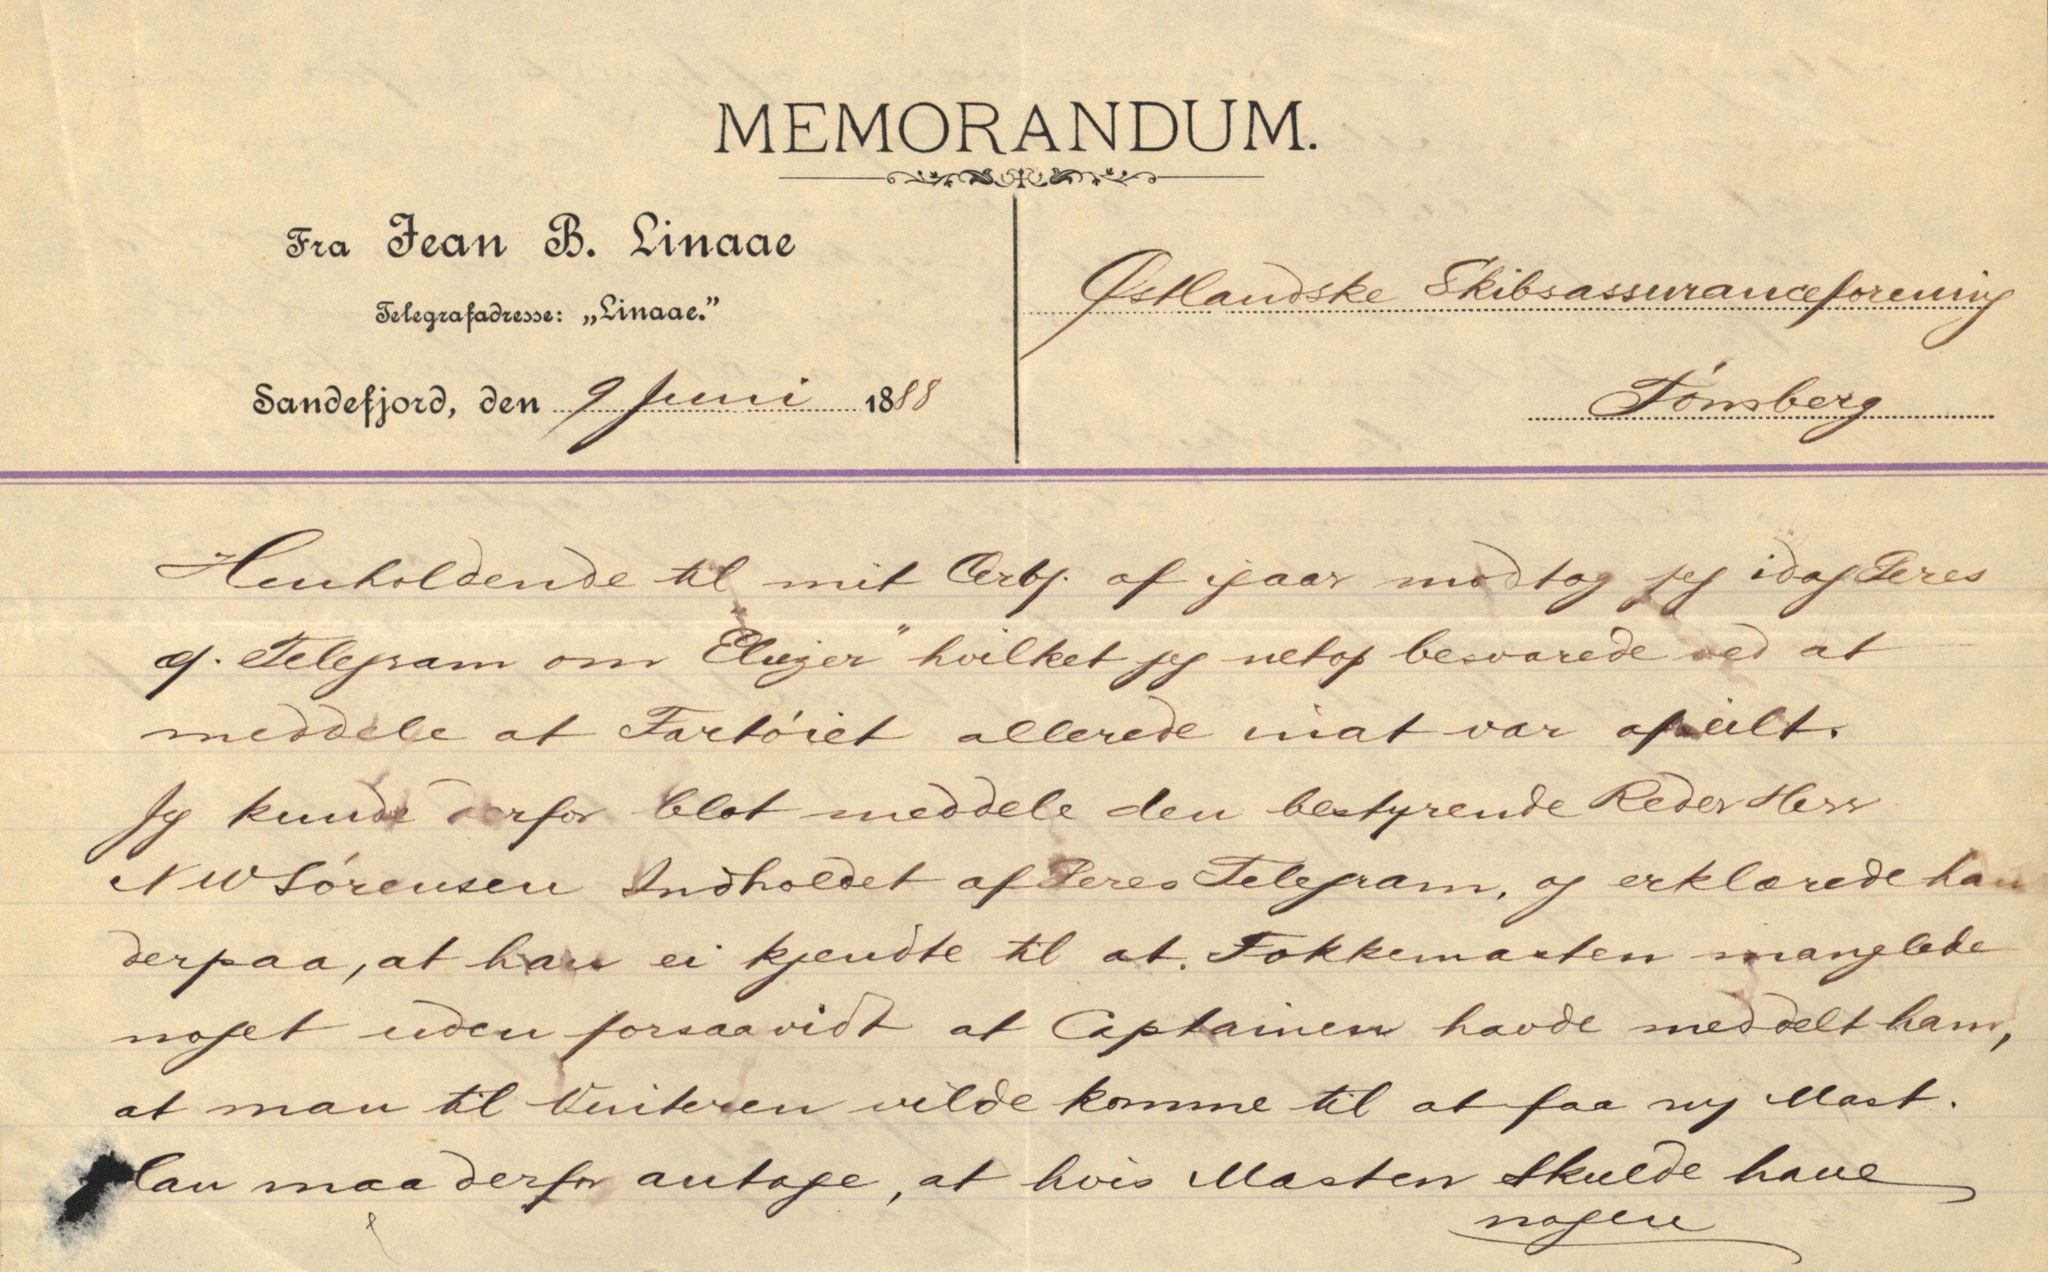 MEMORANDUM.
Fra Jean B. Linaae
Telegrafadresse: „Linaae.”
Sandefjord, den 9 Juni 1888
Østlandske Skibsassuranceforening
Tønsberg
Henholdende til mit Erbg. af igaar modtog jeg idag Deres
gj. Telegram om "Eliezer" hvilket jeg netop besvarede ved at
meddele at Fartøiet allerede inat var afseilt.
Jeg kunde derfor blot meddele den bestyrende Reder Herr
N W Sørensen Indholdet af Deres Telegram, og erklærede han
derpaa, at han ei kjendte til at Fokkemasten manglede
noget uden forsaavidt at Captainen havde meddelt ham,
at man til Vinteren vilde komme til at faa ny Mast.
Man maa derfor antage, at hvis Masten skulde have
nogen